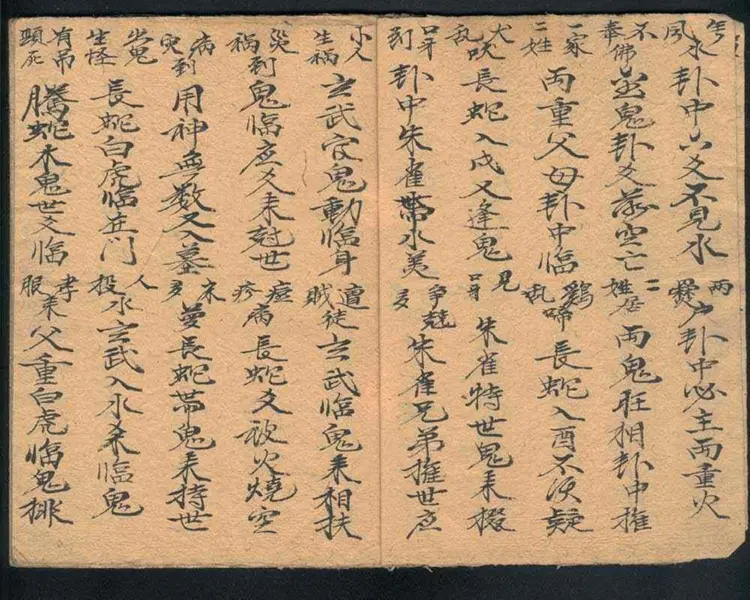 風水 卦中六爻不見水 兩 卦中必主兩重火
不奉佛 鬼卦爻落空亡 二姓居 兩鬼旺相卦中推
一家二姓 両重父母卦中臨 鷄乱啼 長蛇入酉不須疑
犬乱吠 長蛇入戌又逢鬼 見口舌 朱雀持世鬼来掇
口舌到 卦中朱雀帶水 多争競 朱雀兄弟推世应
小人生禍 玄武官鬼動臨身 遭賊徒 玄武临鬼来相扶
災禍到 鬼临应爻来尅世 痘疹病 長蛇爻被火燒空
病灾到 用神無数又入墓 多夢長蛇帶鬼来持世
出鬼生怪 長蛇白虎臨在门 人投水 玄武入水杀临鬼
有吊頸死 騰蛇木鬼世爻临 孝服来 父重白虎临鬼排